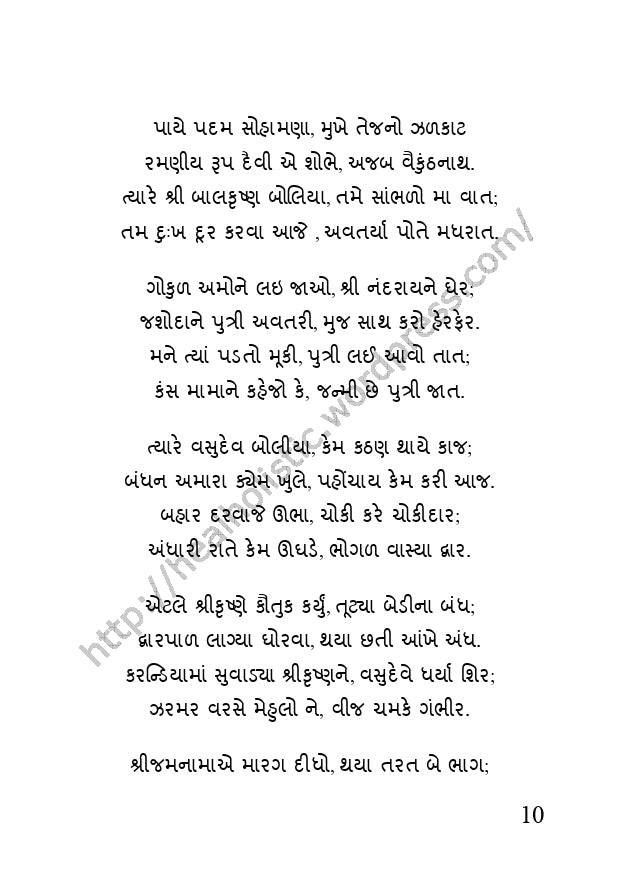 પાયે પદમ સોહામણા, મુખે તેજનો ઝળકાટ
રમણીય રૂપ દૈવી એ શોભે, અજબ વૈકુંઠનાથ.
ત્યારે શ્રી બાલકૃષ્ણ બોલિયા, તમે સાંભળો મા વાત;
તમ દુઃખ દૂર કરવા આજે , અવતર્યા પોતે મધરાત.
ગોકુળ અમોને લઇ જાઓ, શ્રી નંદરાયને ઘેર;
જશોદાને પુત્રી અવતરી, મુજ સાથ કરો હેરફેર.
મને ત્યાં પડતો મૂકી, પુત્રી લઈ આવો તાત;
કંસ મામાને કહેજો કે, જન્મી છે પુત્રી જાત.
ત્યારે વસુદેવ બોલીયા, કેમ કઠણ થાયે કાજ;
બંધન અમારા ક્યેમ ખુલે, પહોંચાય કેમ કરી આજ.
બહાર દરવાજે ઊભા, ચોકી કરે ચોકીદાર;
અંધારી રાતે કેમ ઊઘડે, ભોગળ વાસ્યા દ્વાર.
એટલે શ્રીકૃષ્ણે કૌતુક કર્યું, તૂટ્યા બેડીના બંધ;
દ્વારપાળ લાગ્યા ઘોરવા, થયા છતી આંખે અંધ.
કરન્ડિયામાં સુવાડ્યા શ્રીકૃષ્ણને, વસુદેવે ધર્યા શિર;
ઝરમર વરસે મેહુલો ને, વીજ ચમકે ગંભીર.
શ્રીજમનામાએ મારગ દીધો, થયા તરત બે ભાગ;
10
http://healholistic.wordpress.com/